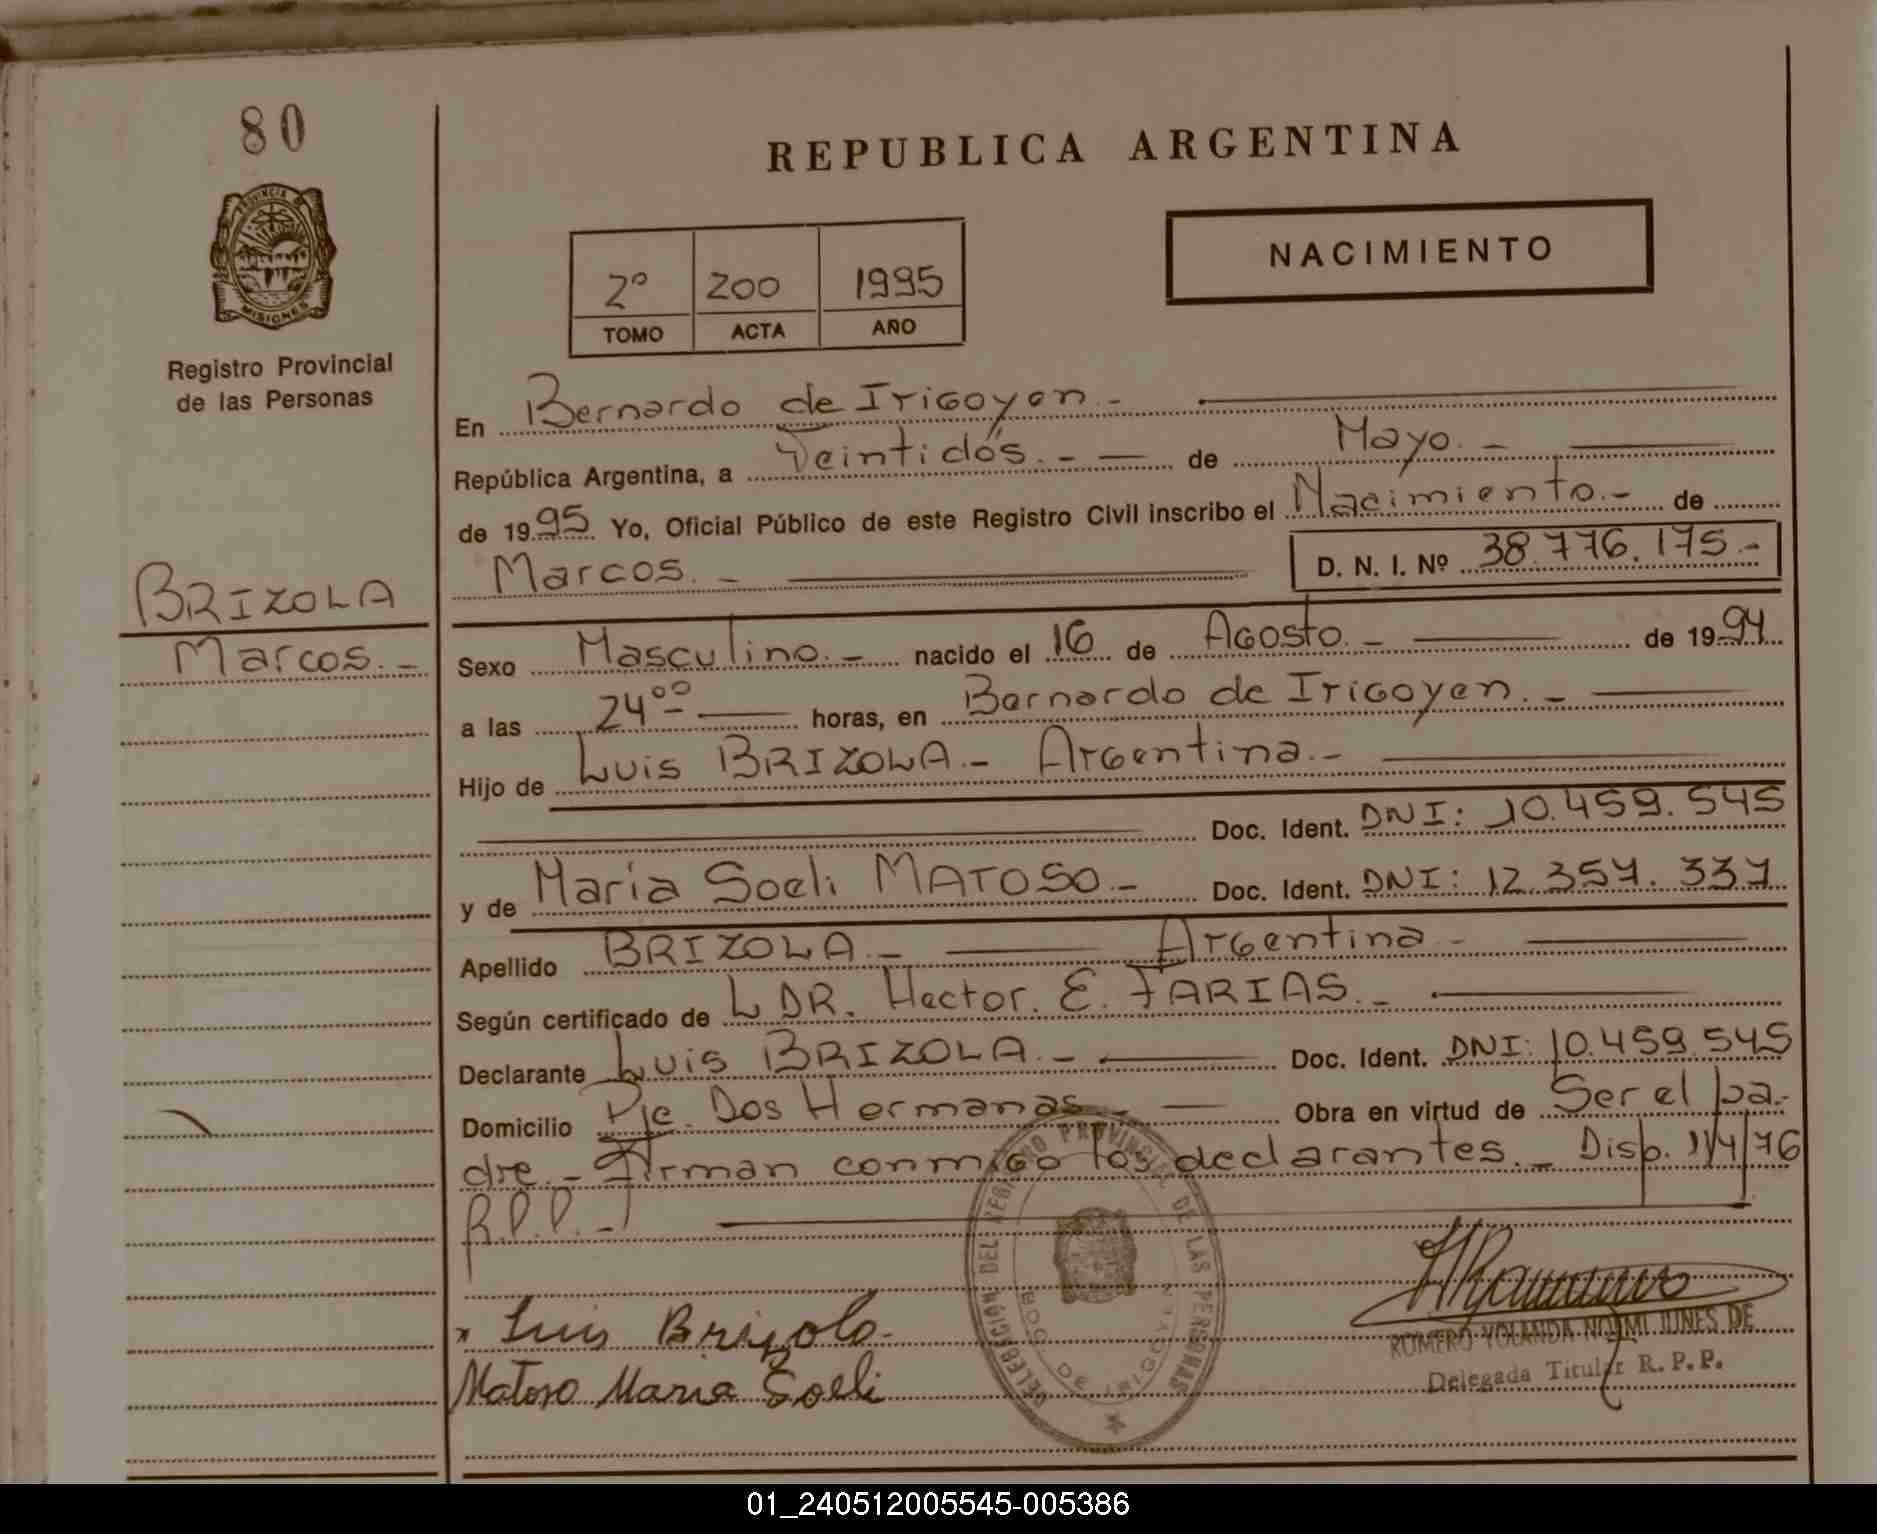 80
PROVINCIA DE
MISIONES
Registro Provincial
de las Personas
BRIZOLA
Marcos.-
REPUBLICA ARGENTINA
2º 200 1995
TOMO ACTA AÑO
NACIMIENTO
En Bernardo de Irigoyen.-
República Argentina, a Veintidós.- de Mayo.-
de 1995 Yo, Oficial Público de este Registro Civil inscribo el Nacimiento.- de
Marcos.- D. N. I. Nº 38.776.175.-
Sexo Masculino.- nacido el 16 de Agosto.- de 1994
a las 24ºº horas, en Bernardo de Irigoyen.-
Hijo de Luis BRIZOLA.- Argentina.-
Doc. Ident. DNI: 10.459.545
y de María Soeli MATOSO.- Doc. Ident. DNI: 12.357.337
Apellido BRIZOLA.- Argentina.-
Según certificado de L DR. Hector. E. FARIAS.-
Declarante Luis BRIZOLA.- Doc. Ident. DNI: 10.459.545
Domicilio Pje. Dos Hermanas.- Obra en virtud de Ser el pa-
dre.- Firman conmigo los declarantes.- Disp. 11/4/76
R.P.P.-
DELEGACIÓN DEL REGISTRO PROVINCIAL DE LAS PERSONAS
BDO. DE IRIGOYEN
Luis Brizola.
Matoso Maria Soeli
ROMERO YOLANDA NOEMI DE
Delegada Titular R.P.P.
01_240512005545-005386